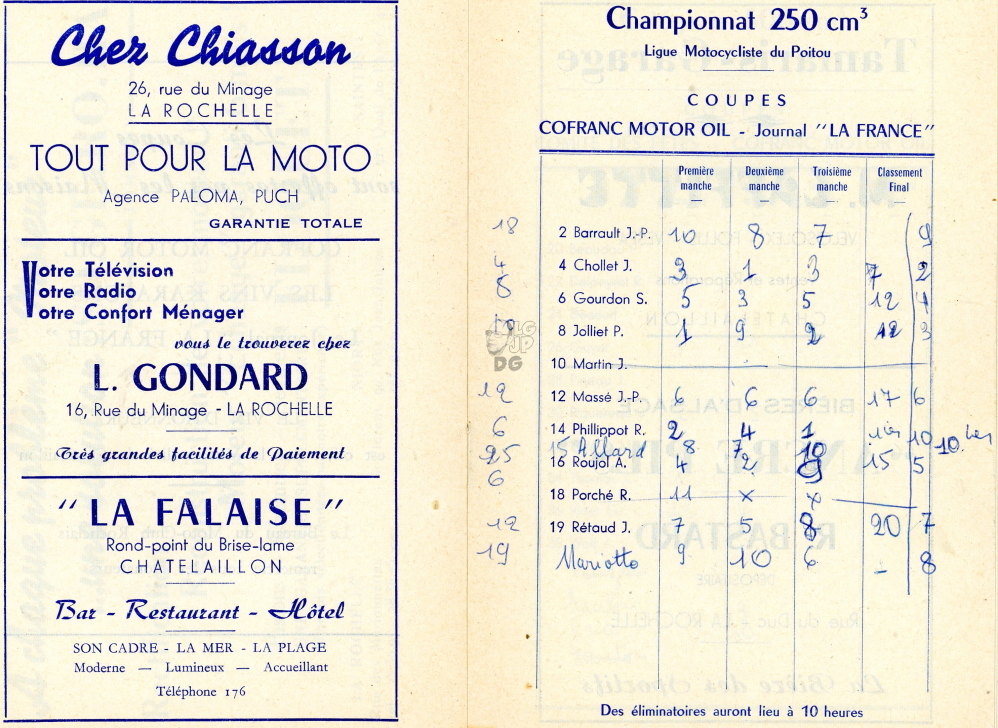 Chez Chiasson
26, rue du Minage
LA ROCHELLE
TOUT POUR LA MOTO
Agence PALOMA, PUCH
GARANTIE TOTALE
Votre Télévision
otre Radio
otre Confort Ménager
vous le trouverez chez
L. GONDARD
16, Rue du Minage - LA ROCHELLE
Très grandes facilités de Paiement
"LA FALAISE"
Rond-point du Brise-lame
CHATELAILLON
Bar - Restaurant - Hôtel
SON CADRE - LA MER - LA PLAGE
Moderne — Lumineux — Accueillant
Téléphone 176
Championnat 250 cm³
Ligue Motocycliste du Poitou
COUPES
COFRANC MOTOR OIL - Journal "LA FRANCE"
Première manche Deuxième manche Troisième manche Classement Final
18 2 Barrault J.-P. 10 8 7 9
4 4 Chollet J. 3 1 3 7 2
8 6 Gourdon S. 5 3 5 12 4
8 Jolliet P. 1 9 2 12 3
10 Martin J.
12 12 Massé J.-P. 6 6 6 17 6
6 14 Phillipot R. 2 4 1 1er 10 10 1er
25 15 Allard 8 7 10
6 16 Roujol A. 4 2 15 5
18 Porché R. 11 x x
12 19 Rétaud J. 7 5 8 20 7
19 Mariotto 9 10 6 - 8
Des éliminatoires auront lieu à 10 heures
LG
JP
DG